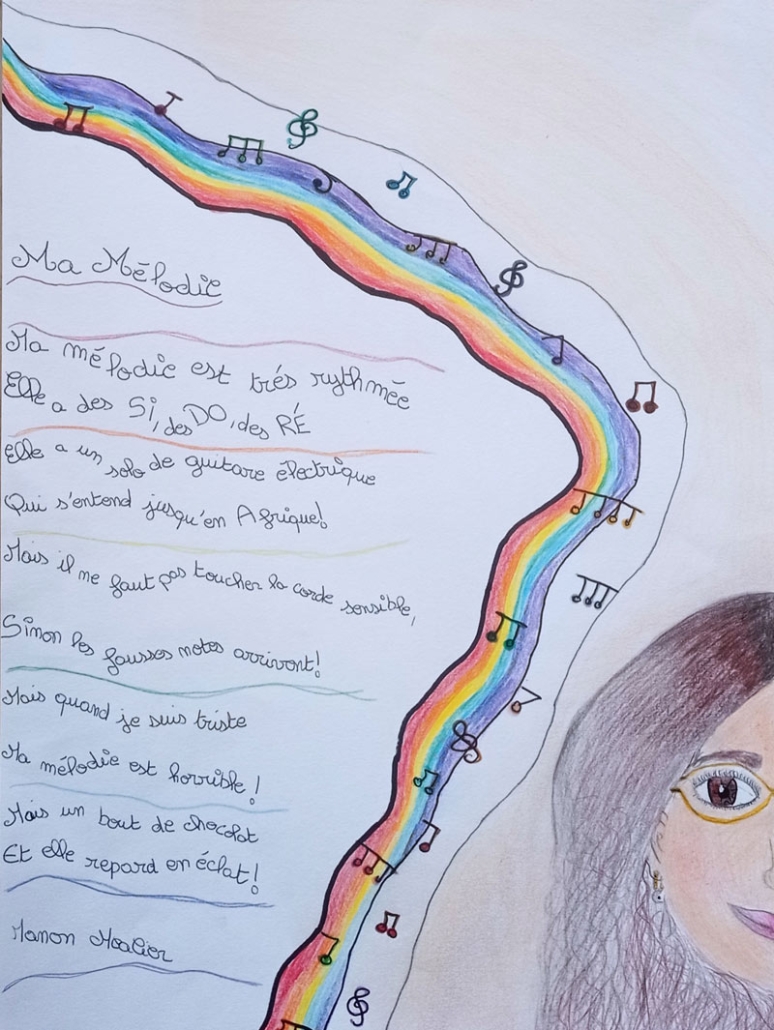 Ma Mélodie
Ma mélodie est trés rythmée
Elle a des SI, des DO, des RÉ
Elle a un solo de guitare électrique
Qui s'entend jusqu'en Afrique!
Mais il ne faut pas toucher la corde sensible,
Sinon les fausses notes arrivont!
Mais quand je suis triste
Ma mélodie est horrible!
Mais un bout de chocolat
Et elle repard en éclat!
Manon